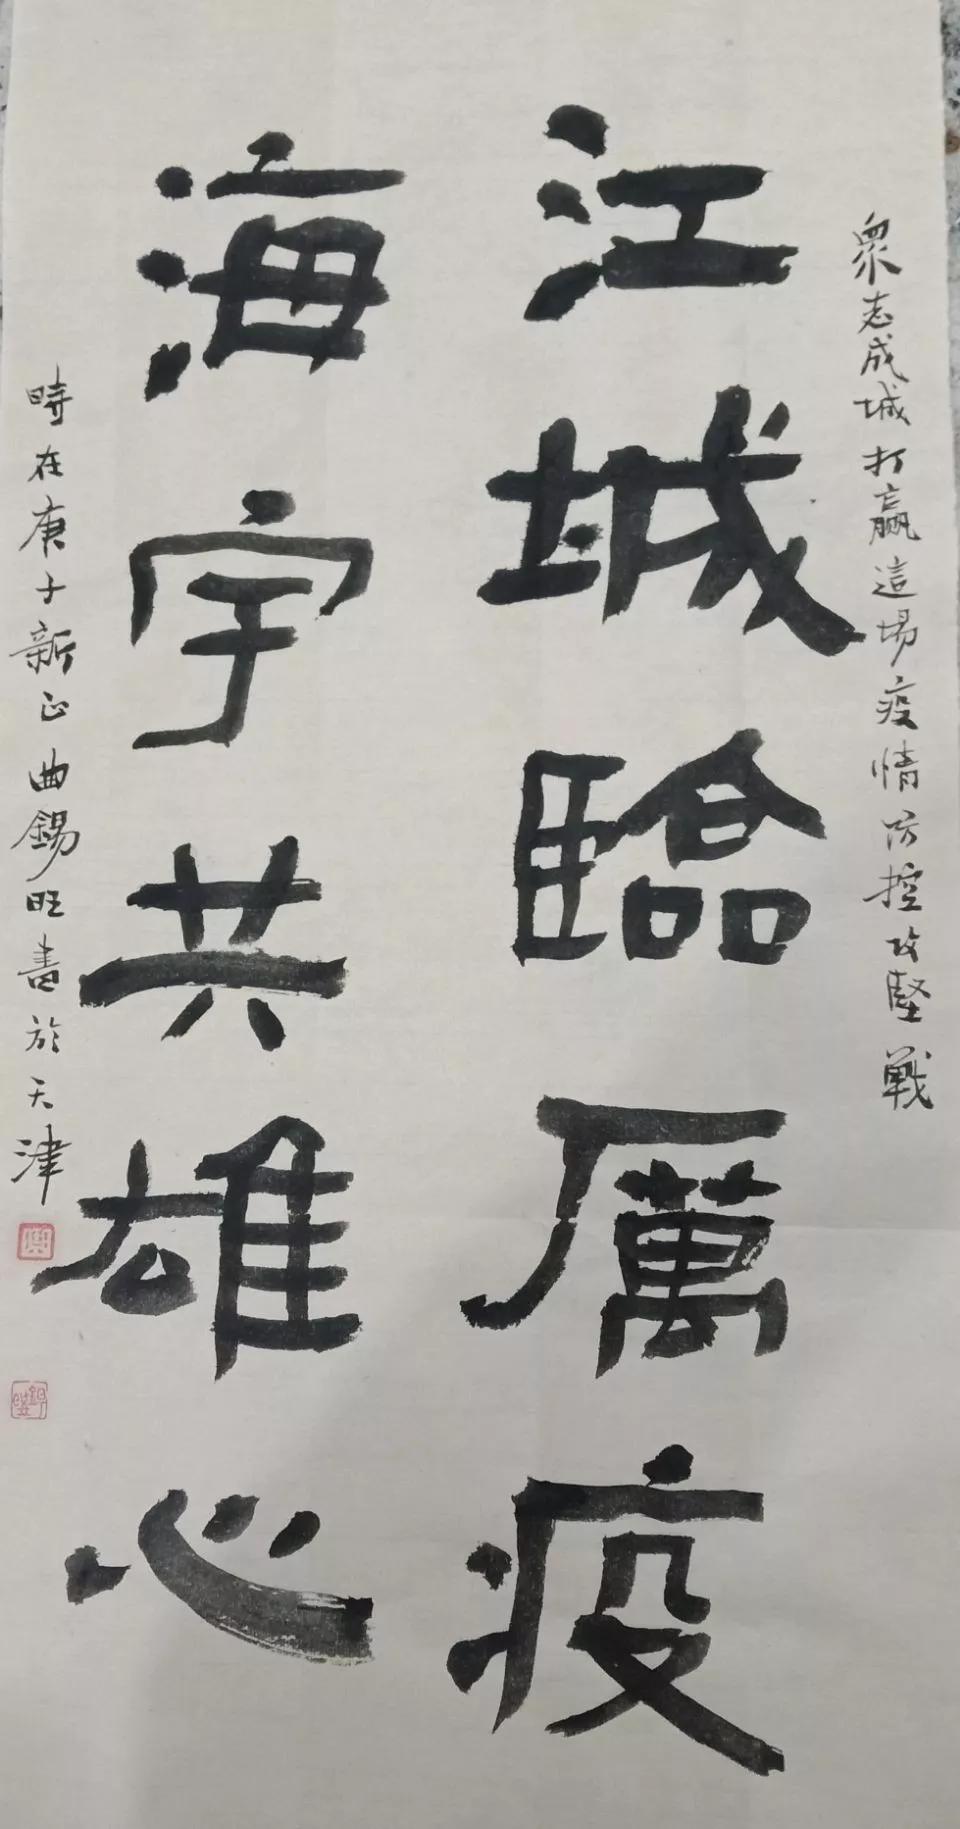 眾志成城打贏這場疫情防控攻堅戰
江城臨厲疫
海宇共雄心
時在庚子新正曲錫旺書於天津